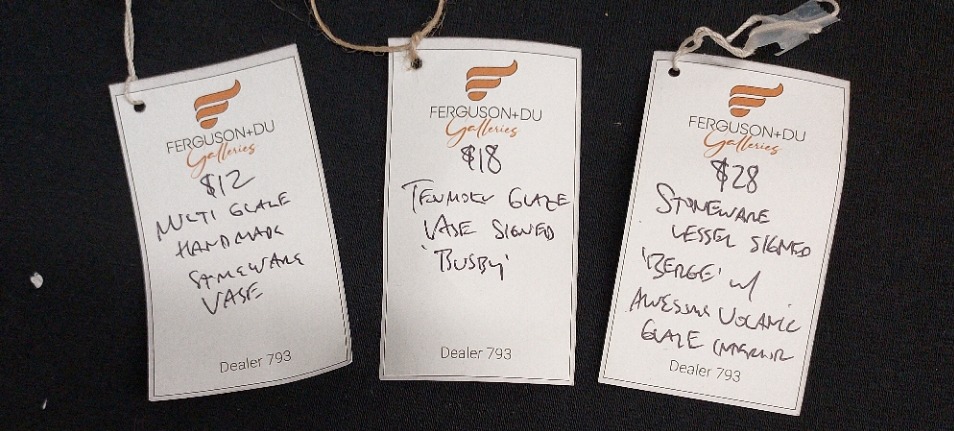 FERGUSON+DU
Galleries
$12
MULTI GLAZE
HANDMADE
STONEWARE
VASE
Dealer 793
FERGUSON+DU
Galleries
$18
TENMOKU GLAZE
VASE SIGNED
'BUSBY'
Dealer 793
FERGUSON+DU
Galleries
$28
STONEWARE
VESSEL SIGNED
'BERGE' w/
AWESOME VOLCANIC
GLAZE INTERIOR
Dealer 793